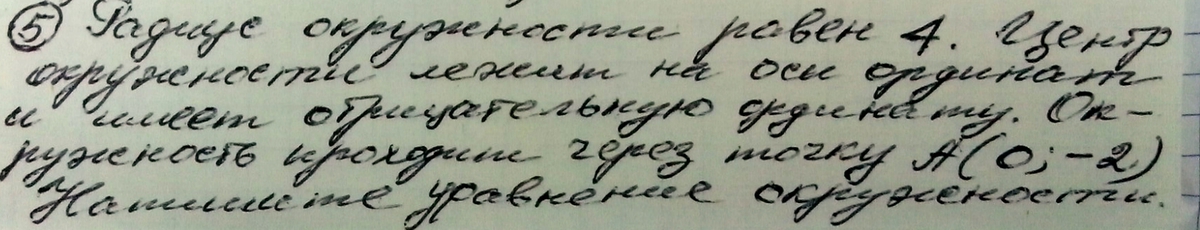 ⑤ Радиус окружности равен 4. Центр
окружности лежит на оси ординат
и имеет отрицательную ординату. Ок-
ружность проходит через точку А(0; -2)
Напишите уравнение окружности.